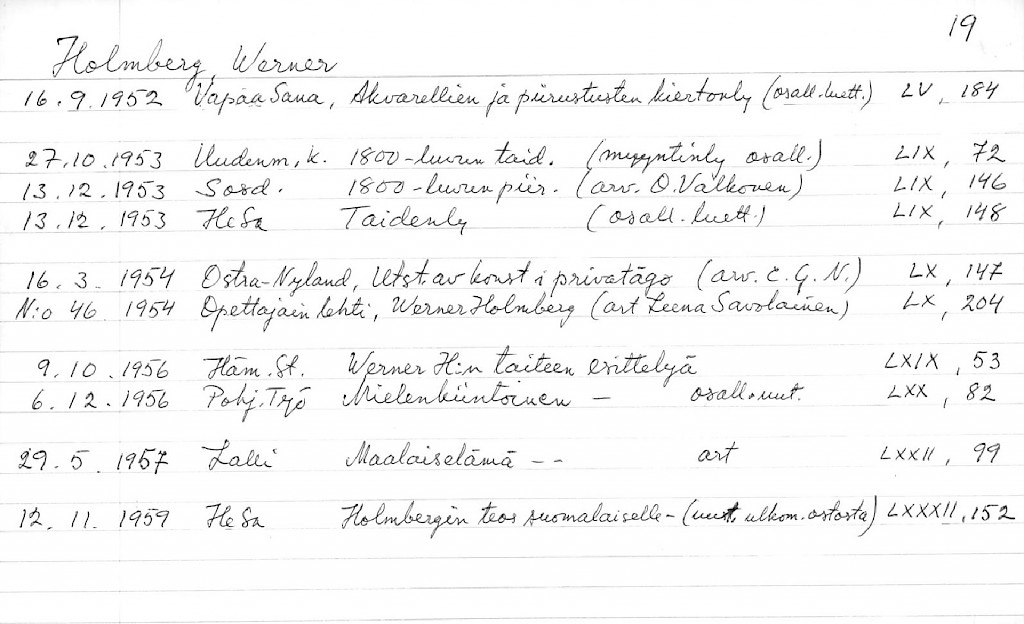 19
Holmberg, Werner
16.9.1952 Vapaa Sana, Akvarellien ja piirustusten kiertonly (osall.luett.) LV, 184
27.10.1953 Uudenm. k. 1800-luvun taid. (myyntinly osall.) LIX, 72
13.12.1953 Sosd. 1800-luvun piir. (arv. O. Valkonen) LIX, 146
13.12.1953 HeSa Taidenly (osall.luett.) LIX, 148
16.3.1954 Östra-Nyland, Utst. av konst i privatägo (arv. C.G.N.) LX, 147
N:o 46 1954 Opettajain lehti, Werner Holmberg (art Leena Savolainen) LX, 204
9.10.1956 Häm. St. Werner H:n taiteen erittelyä LXIX, 53
6.12.1956 Pohj. Työ Mielenkiintoinen - osall. uut. LXX, 82
29.5.1957 Lalli Maalaiselämä -- art LXXII, 99
12.11.1959 HeSa Holmbergin teos suomalaiselle - (uut. ulkom. ostosta) LXXXII, 152